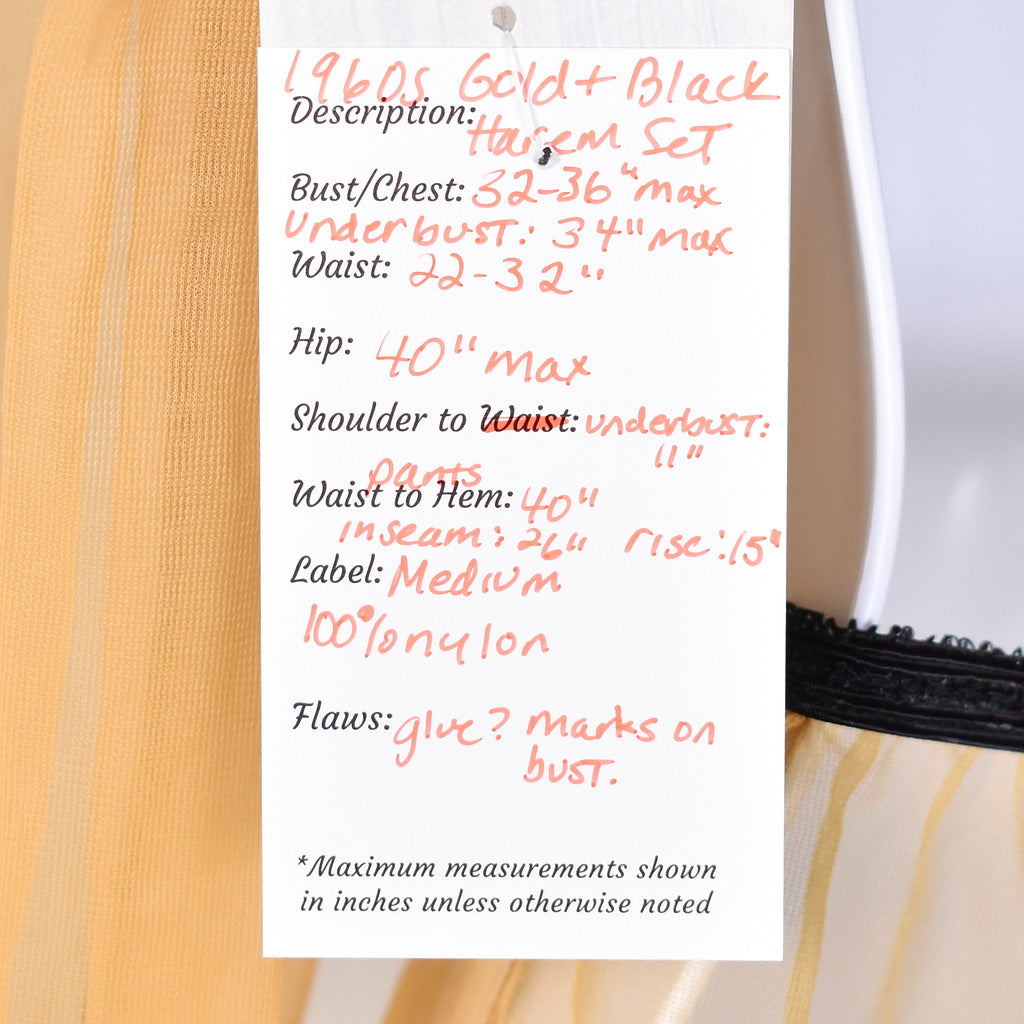 1960s Gold + Black
Description: Harem Set
Bust/Chest: 32-36" max
Underbust: 34" max
Waist: 22-32"
Hip: 40" max
Shoulder to Waist: underbust:
11"
pants
Waist to Hem: 40"
inseam: 26" rise: 15"
Label: Medium
100% nylon
Flaws: glue? marks on
bust.
*Maximum measurements shown
in inches unless otherwise noted